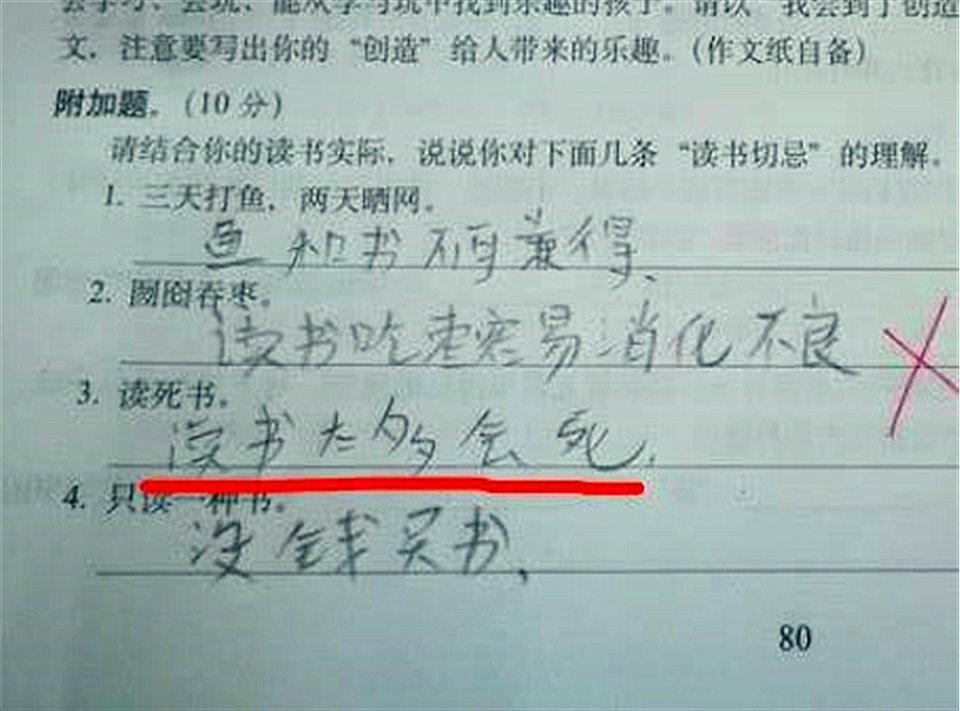 会学习、会玩、能从学习玩中找到乐趣的孩子。请以“我尝到了创造
文，注意要写出你的“创造”给人带来的乐趣。（作文纸自备）
附加题。（10 分）
请结合你的读书实际，说说你对下面几条“读书切忌”的理解。
1. 三天打鱼，两天晒网。
鱼和书不可兼得、
2. 囫囵吞枣。
读书吃枣容易消化不良
3. 读死书。
读书太多会死.
4. 只读一种书。
没钱买书、
80